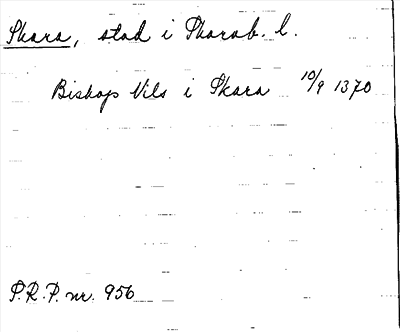 Skara, stad i Skarab. l.
Biskop Nils i Skara 10/9 1370
P.R.P. nr. 956